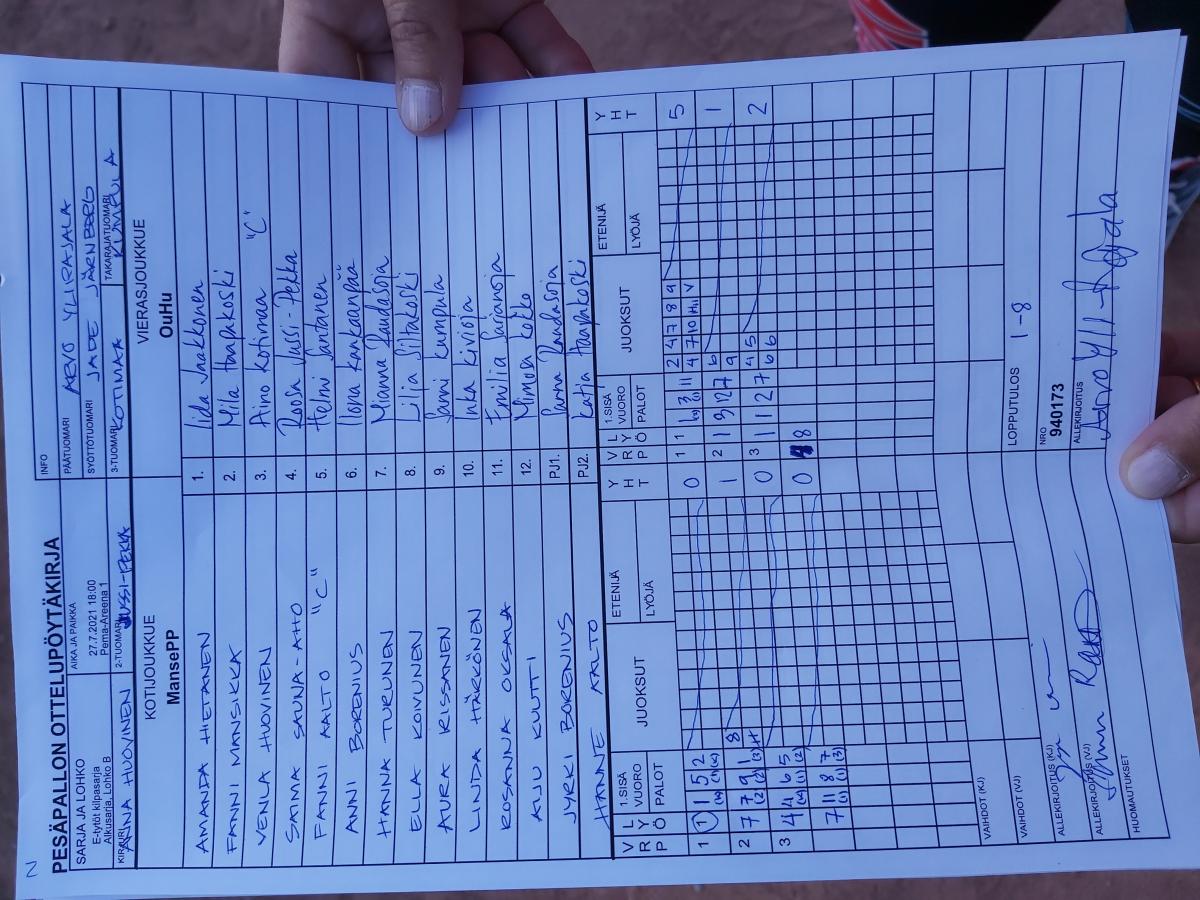 2
PESÄPALLON OTTELUPÖYTÄKIRJA
SARJA JA LOHKO
E-tytöt kilpasarja
Alkusarja, Lohko B
AIKA JA PAIKKA
27.7.2021 18:00
Pema-Areena 1
INFO
PÄÄTUOMARI ARVO YLIRAJALA
SYÖTTÖTUOMARI JADE JÄRNBERG
KIRJURI ANNA HUOVINEN
2-TUOMARI JUSSI-PEKKA
3-TUOMARI KOTIMAA
TAKARAJATUOMARI KUMPULA
KOTIJOUKKUE
MansePP
VIERASJOUKKUE
OuHu
AMANDA HIETANEN 1. Iida Jaakkonen
FANNI MANSIKKA 2. Mila Haapakoski
VENLA HUOVINEN 3. Aino Kotimaa "C"
SAIMA SAUNA-AHO 4. Roosa Jussi-Pekka
FANNI AALTO "C" 5. Helmi Santanen
ANNI BORENIUS 6. Ilona Kankaanpää
HANNA TURUNEN 7. Mianna Randasoja
ELLA KOIVUNEN 8. Lilja Siltakoski
AURA KISSANEN 9. Sanni Kumpula
LINDA HÄRKÖNEN 10. Inka Kivioja
ROSANNA OKSALA 11. Emilia Sarjanoja
AIJU KUUTTI 12. Mimosa Kokko
JYRKI BORENIUS PJ1. Sanna Randasoja
HANNE AALTO PJ2. Katja Haapakoski
V R P
L Y Ö
1.SISÄ VUORO
PALOT
JUOKSUT
ETENIJÄ
LYÖJÄ
Y H T
V R P
L Y Ö
1.SISÄ VUORO
PALOT
JUOKSUT
ETENIJÄ
LYÖJÄ
Y H T
1 1 1 5 2 0 1 1 3 11 2 4 7 8 9 5
4 7 10
2 7 7 9 1 8 1 2 1 9 12 7 6 1
(2) (2) (3) 9
3 4 4 6 5 0 3 1 1 2 7 4 5 2
(4) (1) (2) 6 6
7 11 8 7 0 8
(1) (1) (3)
VAIHDOT (KJ)
VAIHDOT (VJ)
LOPPUTULOS 1-8
ALLEKIRJOITUS (KJ)
NRO
940173
ALLEKIRJOITUS (VJ)
ALLEKIRJOITUS
Arvo Yli-Rajala
HUOMAUTUKSET